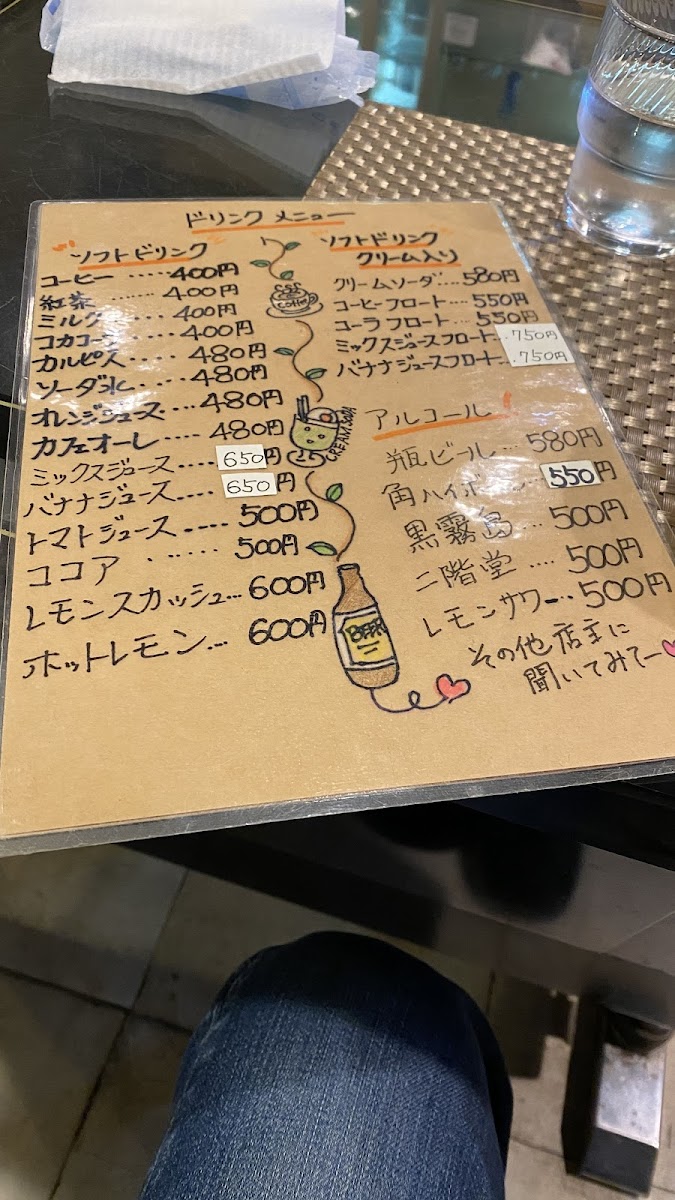 ドリンク メニュー
ソフトドリンク
コーヒー ・・・・・ 400円
紅茶 ・・・・・・・ 400円
ミルク ・・・・ 400円
コカコーラ ・・・ 400円
カルピス ・・・・ 480円
ソーダ水 ・・・・ 480円
オレンジジュース ・・・・ 480円
カフェオーレ ・・・・ 480円
ミックスジュース ・・・・ 650円
バナナジュース ・・・・ 650円
トマトジュース ・・・・・ 500円
ココア ・・・・・・ 500円
レモンスカッシュ ・・・ 600円
ホットレモン ・・・ 600円
Coffee
CREAM SODA
BEER
ソフトドリンク
クリーム入り
クリームソーダ ・・・・ 580円
コーヒーフロート ・・・・ 550円
コーラフロート ・・・・ 550円
ミックスジュースフロート ・・ 750円
バナナジュースフロート ・・ 750円
アルコール !
瓶ビール ・・・ 580円
角ハイボ 550円
黒霧島 ・・・ 500円
二階堂 ・・・・ 500円
レモンサワー ・・ 500円
その他店主に
聞いてみてー